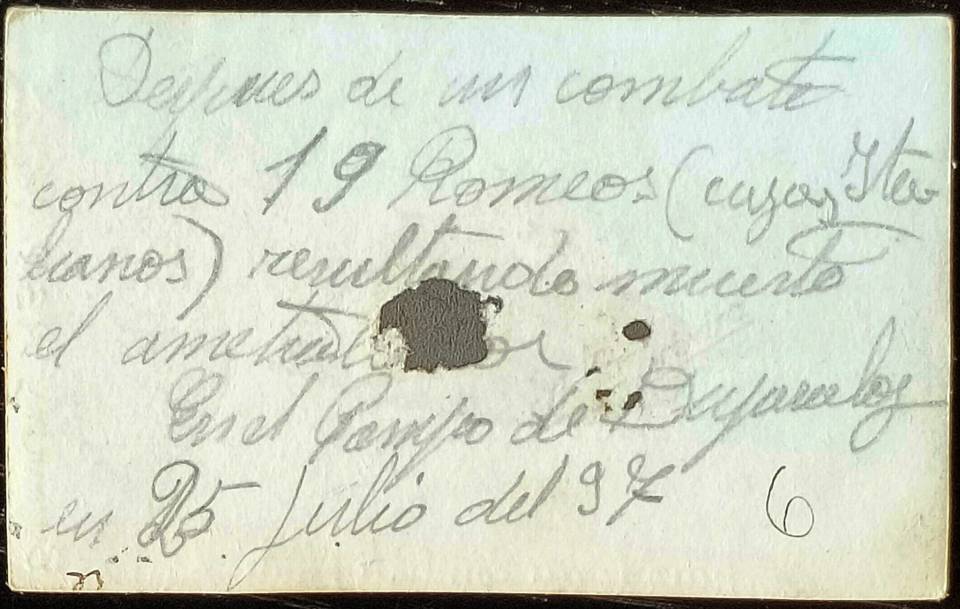 Despues de un combate
contra 19 Romeos (cazas Ita
lianos) resultando muerto
el ametrallador
En el Campo de Bujaraloz
en 25 Julio del 37
6